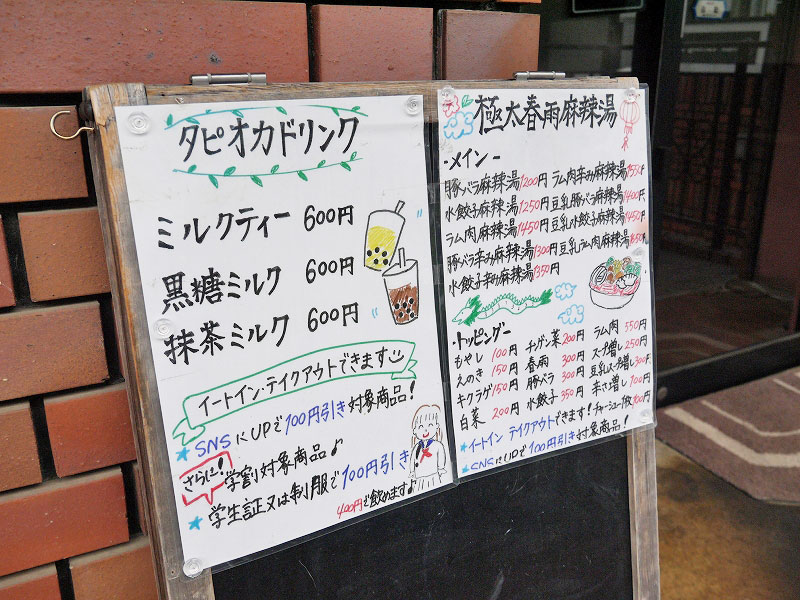 タピオカドリンク
ミルクティー 600円
黒糖ミルク 600円
抹茶ミルク 600円
イートイン・テイクアウトできます
★SNSにUPで100円引き対象商品!
さらに!学割対象商品♪
★学生証又は制服で100円引き
400円で飲めます♪
極太春雨麻辣湯
-メイン-
豚バラ麻辣湯1200円
水餃子麻辣湯1250円
ラム肉麻辣湯1450円
豚バラ辛み麻辣湯1300円
水餃子辛み麻辣湯1350円
ラム肉辛み麻辣湯1550円
豆乳豚バラ麻辣湯1400円
豆乳水餃子麻辣湯1450円
豆乳ラム肉麻辣湯1650円
・トッピング-
もやし 100円
えのき 150円
キクラゲ 150円
白菜 200円
チンゲン菜 200円
春雨 300円
豚バラ 300円
水餃子 350円
ラム肉 550円
スープ増し 250円
豆乳スープ増し 300円
辛さ増し 100円
チャーシュー1枚 100円
★イートイン テイクアウトできます!
★SNSにUPで100円引き対象商品!